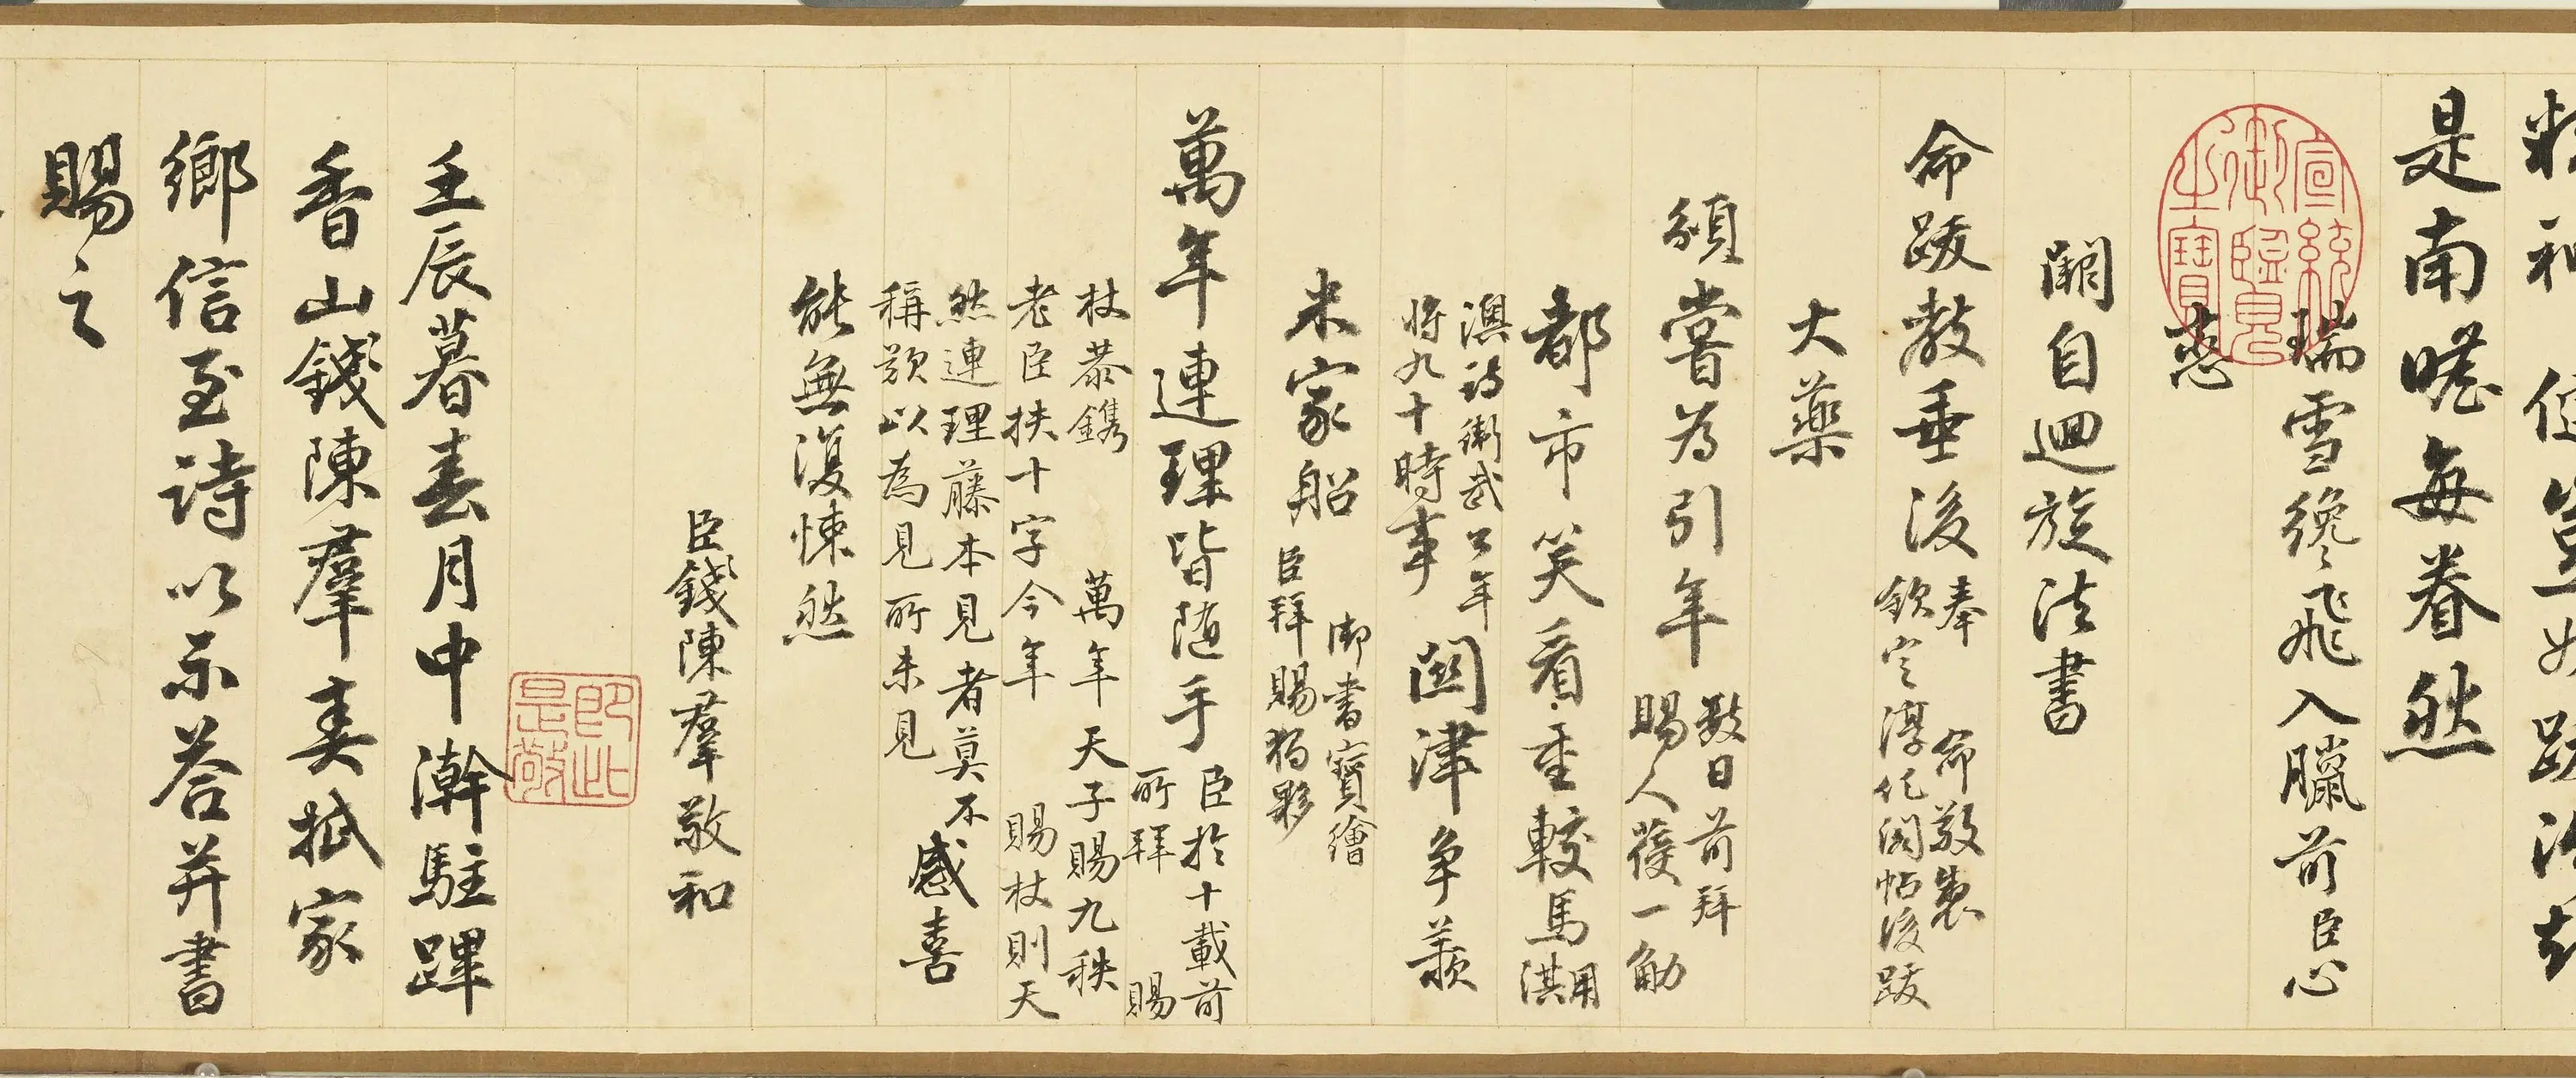 是南暏每眷然
瑞雪纔飛入臘前臣心
戀
闕自迴旋法書
命跋教垂後奉
命敬製
欽定淳化閣帖後跋
大藥
頒嘗為引年數日前拜
賜人葠一觔
都市笑看重較馬淇用
澳詩衛武公年
將九十時事關津爭羨
米家船
御書寶繪
臣拜賜獨夥
萬年連理皆隨手臣於十載前
所拜
賜
杖恭鐫
萬年天子賜九秩
老臣扶十字今年
賜杖則天
然連理藤本見者莫不
感喜
稱歎以為見所未見
能無復悚然
臣錢陳羣敬和
即此是敬
壬辰暮春月中澣駐蹕
香山錢陳羣奏摺家
鄉信至詩以示答并書
賜之
宣統御覽之寶